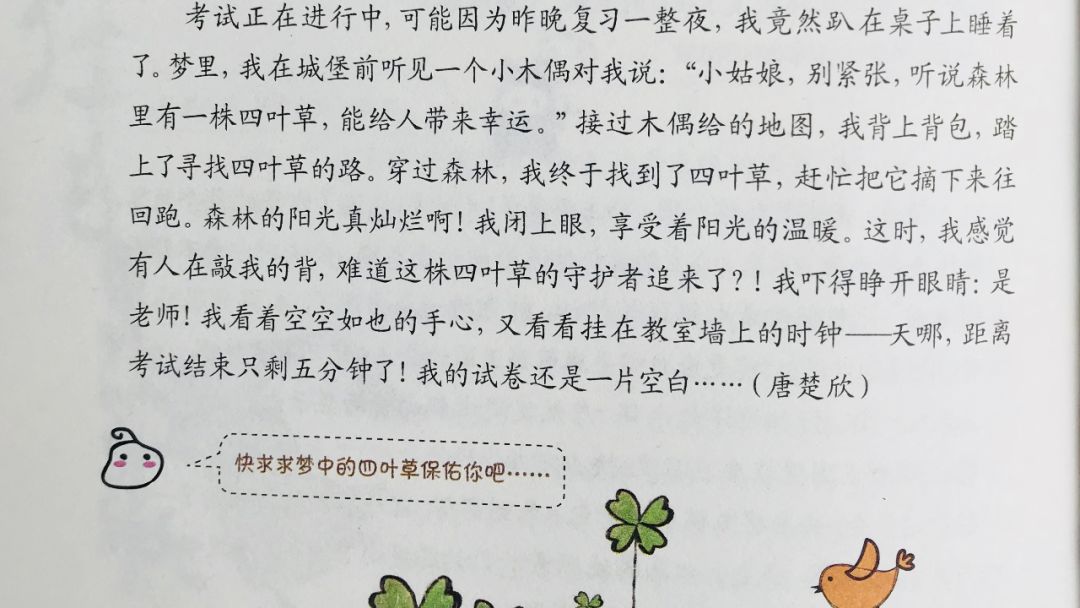 考试正在进行中，可能因为昨晚复习一整夜，我竟然趴在桌子上睡着
了。梦里，我在城堡前听见一个小木偶对我说：“小姑娘，别紧张，听说森林
里有一株四叶草，能给人带来幸运。”接过木偶给的地图，我背上背包，踏
上了寻找四叶草的路。穿过森林，我终于找到了四叶草，赶忙把它摘下来往
回跑。森林的阳光真灿烂啊！我闭上眼，享受着阳光的温暖。这时，我感觉
有人在敲我的背，难道这株四叶草的守护者追来了？！我吓得睁开眼睛：是
老师！我看着空空如也的手心，又看看挂在教室墙上的时钟——天哪，距离
考试结束只剩五分钟了！我的试卷还是一片空白……（唐楚欣）
快求求梦中的四叶草保佑你吧……